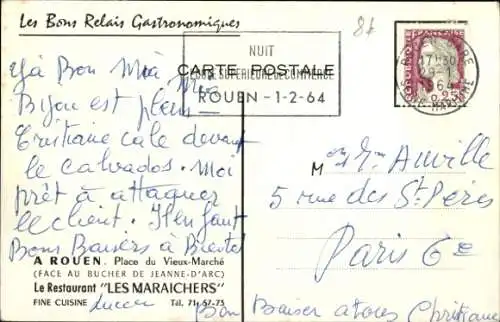 Les Bons Relais Gastronomiques
8f
NUIT
CARTE POSTALE
SUPERIEURE DE COMMERCE
ROUEN - 1-2-64
17H30
29-1
64
SEINE-MARITIME
REPUBLIQUE FRANÇAISE
0,25
Bon Mia
Bijou est plein
Cristiane cale devant
le calvados. Moi
prêt à attaquer
le client. Il en faut
Bons Baisers à Bientot
A ROUEN. Place du Vieux-Marché
(FACE AU BUCHER DE JEANNE-D'ARC)
Le Restaurant "LES MARAICHERS"
FINE CUISINE Tél. 71-57-73
Lucien
M et Mme Auville
5 rue des Sts Pères
Paris 6e
Bon Baiser a tous Christiane